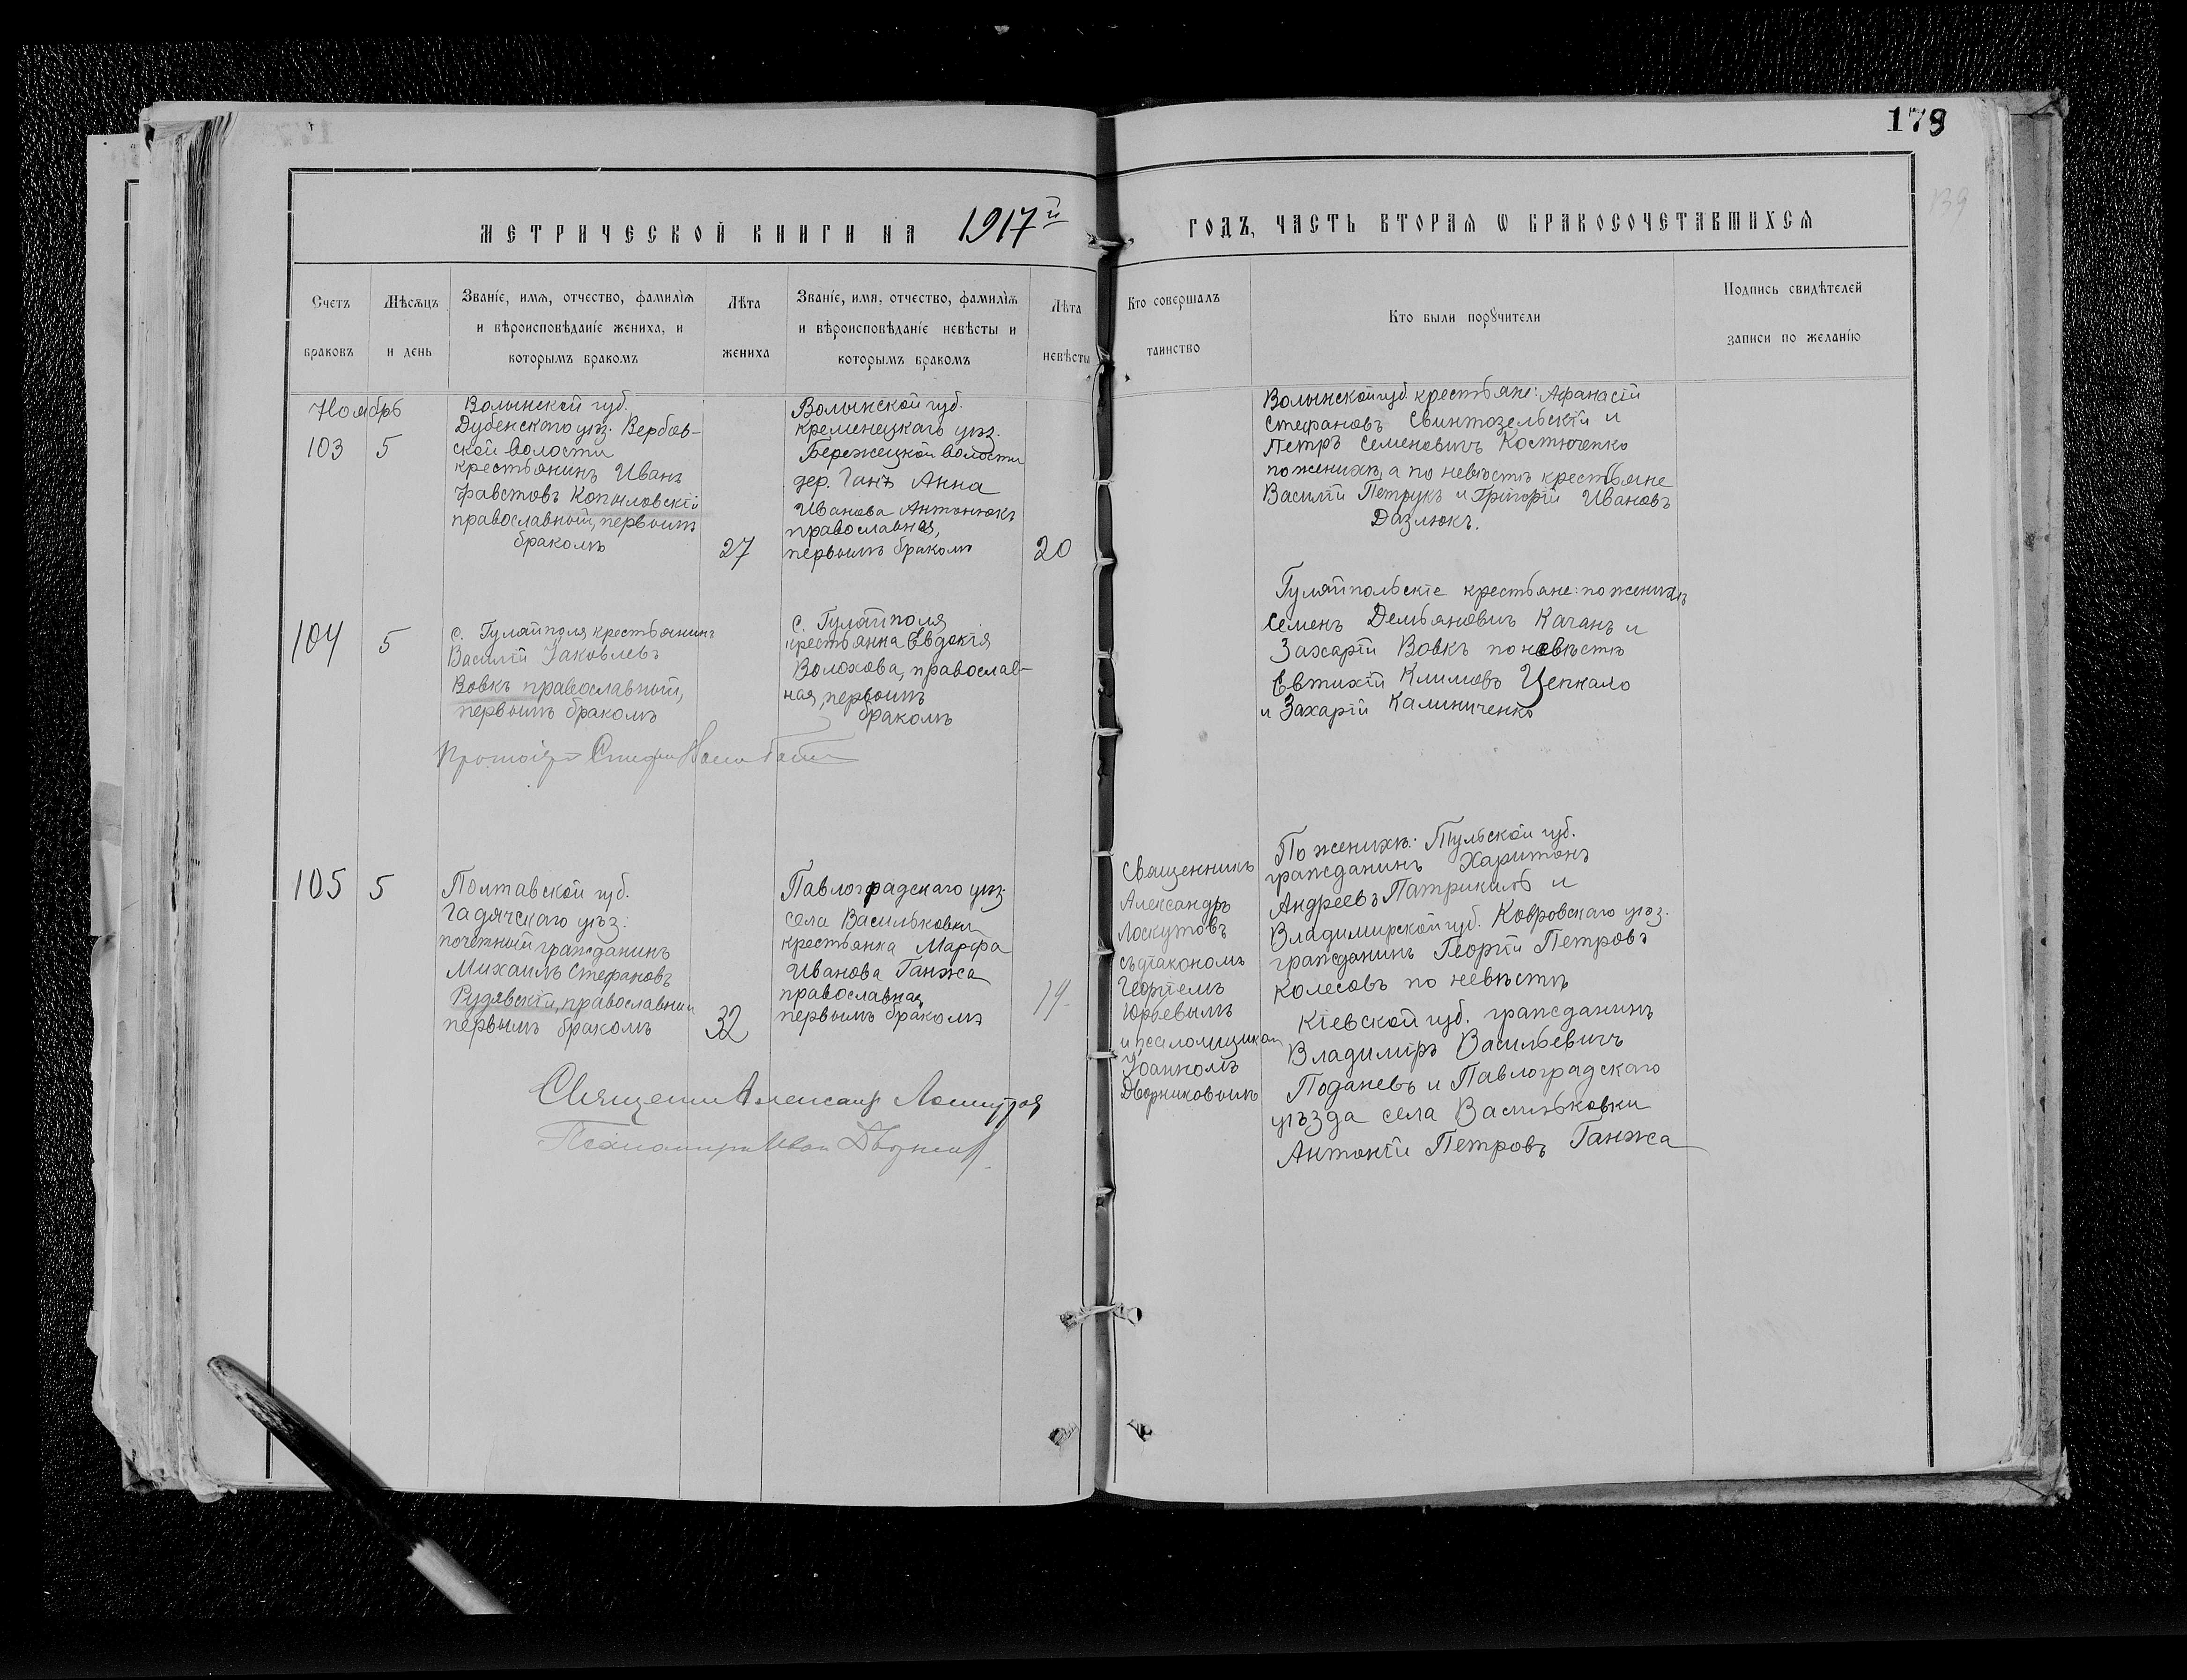 178
139
МЕТРИЧЕСКОЙ КНИГИ НА 1917й
ГОДЪ, ЧАСТЬ ВТОРАЯ Ѡ БРАКОСОЧЕТАВШИХСЯ
Счетъ
браковъ
Мѣсяцъ
и день
Званіе, имя, отчество, фамилія
и вѣроисповѣданіе жениха, и
которымъ бракомъ
Лѣта
жениха
Званіе, имя, отчество, фамилія
и вѣроисповѣданіе невѣсты и
которымъ бракомъ
Лѣта
невѣсты
Кто совершалъ
таинство
Кто были поручители
Подпись свидѣтелей
записи по желанію
Ноябрь
103
5
Волынской губ.
Дубенскаго уѣз. Вербов-
ской волости
крестьянинъ Иванъ
Копыловскій
православный, первымъ
бракомъ
27
Волынской губ.
Кременецкаго уѣз.
Бережецкой волости
дер. Анна
Иванова Антонюкъ
православная,
первымъ бракомъ
20
Волынской губ. крестьяне: Афанасій
Стефановъ Свинтозельскій и
Петръ Семеновичъ Костюченко
по женихѣ, а по невѣстѣ крестьяне
Василій Петрукъ и Григорій Ивановъ
Дазлюкъ.
104
5
с. Гуляйполя крестьянинъ
Василій Іаковлевъ
Вовкъ православный,
первымъ бракомъ
с. Гуляйполя
крестьянка Евдокія
Волохова, православ-
ная, первымъ
бракомъ
Гуляйпольскіе крестьяне: по женихѣ
Семенъ Демьяновичъ Качанъ и
Захарій Вовкъ по невѣстѣ
Евтихій Климовъ Цепкало
и Захарій Калиниченко
Протоіерей
105
5
Полтавской губ.
Гадячскаго уѣз.
почетный гражданинъ
Михаилъ Стефановъ
Рудявскій, православный
первымъ бракомъ
32
Павлоградскаго уѣз.
села Васильковки
крестьянка Марфа
Иванова Ганжа
православная
первымъ бракомъ
19
Священникъ
Александръ
Лоскутовъ
съ діакономъ
Георгіемъ
Юрьевымъ
и псаломщикомъ
Іоанномъ
Дворниковымъ
По женихѣ: Тульской губ.
гражданинъ Харитонъ
Андреевъ Патрикилъ и
Владимирской губ. Ковровскаго уѣз.
гражданинъ Георгій Петровъ
Колесовъ по невѣстѣ
Кіевской губ. гражданинъ
Владиміръ Васильевичъ
Поданевъ и Павлоградскаго
уѣзда села Васильковки
Антоній Петровъ Ганжа